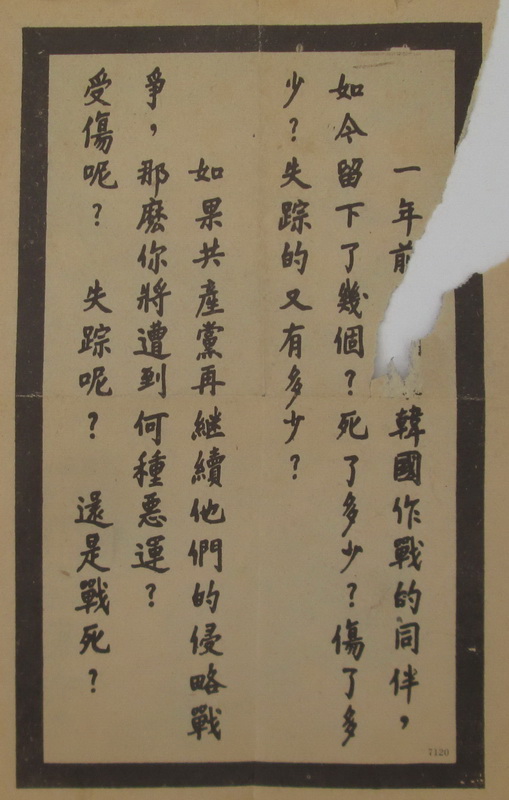 一年前
韓國作戰的同伴，
如今留下了幾個？死了多少？傷了多
少？失踪的又有多少？
如果共產黨再繼續他們的侵略戰
爭，那麽你將遭到何種悪運？
受傷呢？ 失踪呢？ 還是戰死？
7120